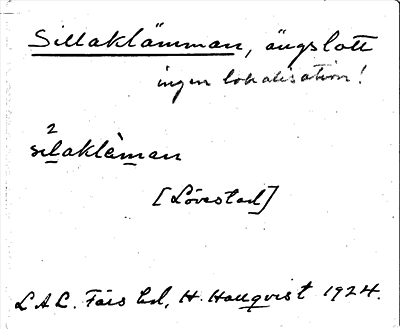 Sillaklämman, ängslott
ingen lokalisation!
2
silaklèman
[Lövestad]
L.A.L. Färs hd, H. Hallqvist 1924.